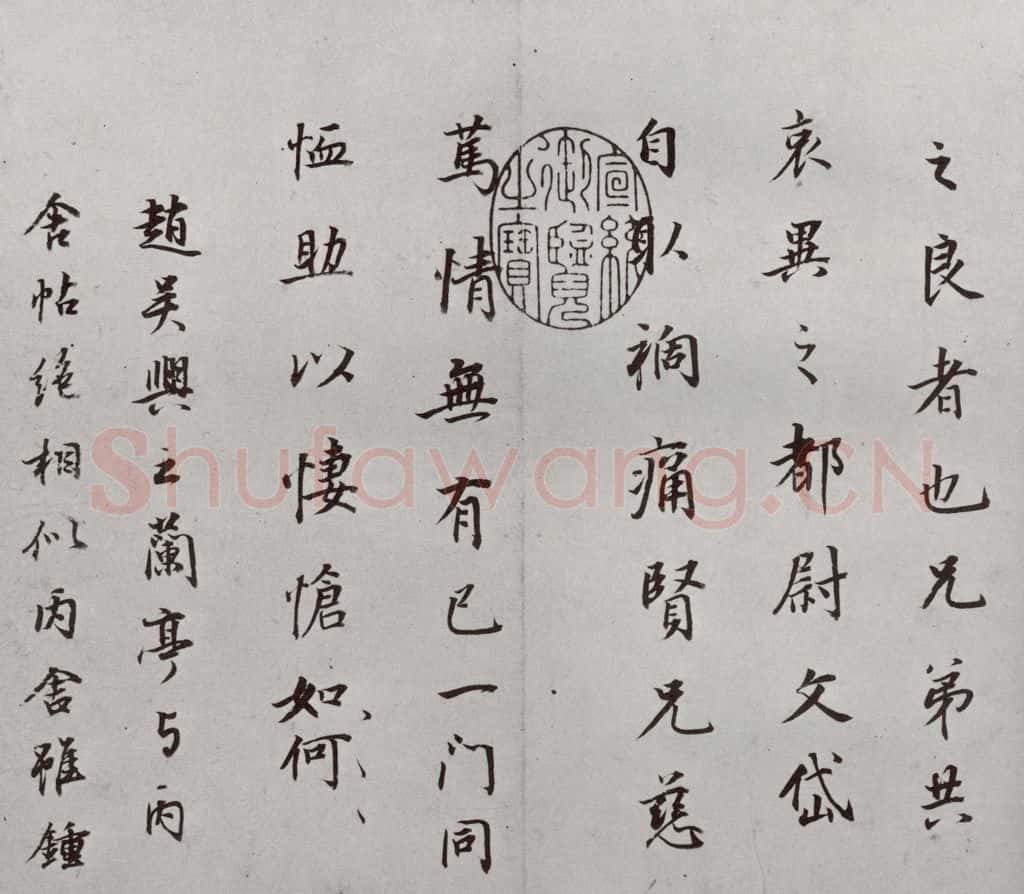 之良者也兄弟共
哀異之都尉文岱
自取禍痛賢兄慈
篤情無有已一门同
恤助以悽愴如何、、
趙吴興之蘭亭与丙
舍帖絶相似丙舍雖鍾
宣統御覽之寶
Shufawang.CN